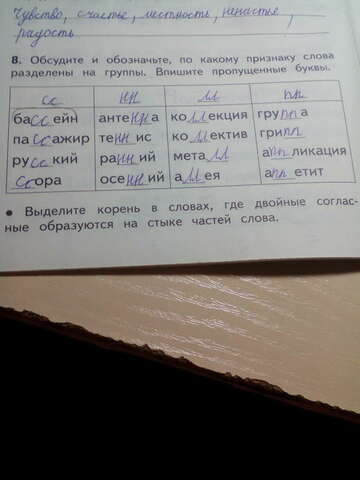 Чувство, счастье, местность, ненастье,
радость
8. Обсудите и обозначьте, по какому признаку слова
разделены на группы. Впишите пропущенные буквы.
сс нн лл пп
бассейн антенна коллекция группа
пассажир теннис коллектив грипп
русский ранний металл аппликация
ссора осенний аллея аппетит
• Выделите корень в словах, где двойные соглас-
ные образуются на стыке частей слова.